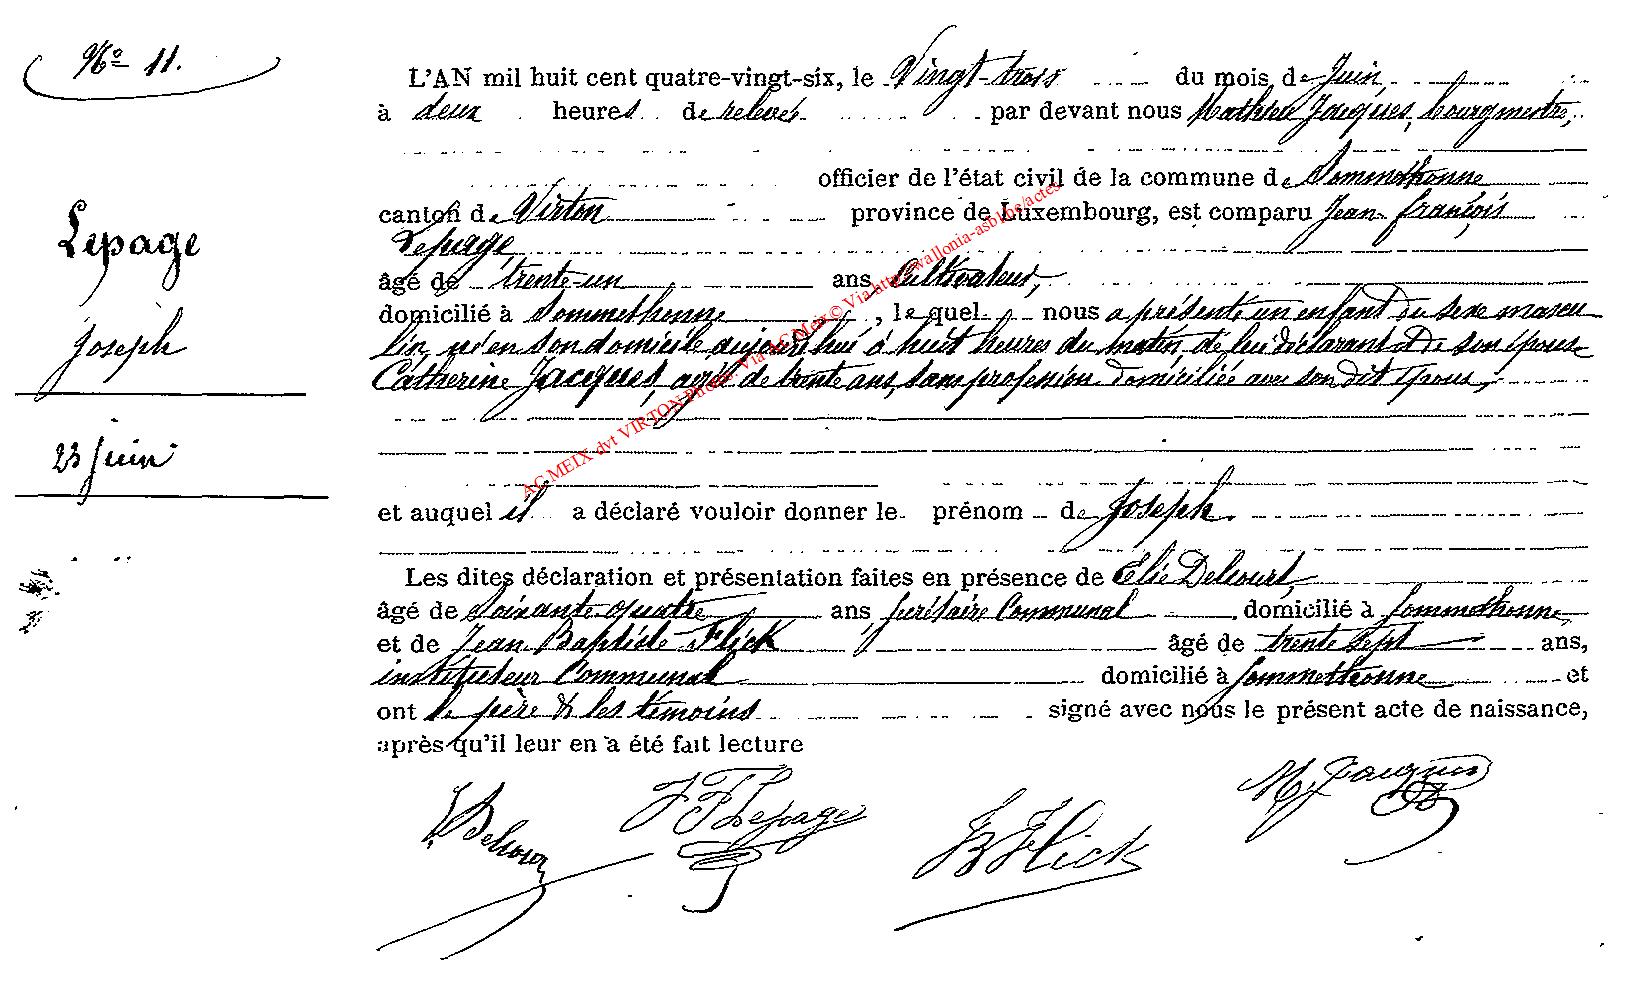 N° 11.
Lepage
Joseph
23 juin
L'AN mil huit cent quatre-vingt-six, le Vingt-trois du mois de Juin,
à deux heures de relevée par devant nous Mathieu Jacques, bourgmestre,
officier de l'état civil de la commune de Sommethonne
canton de Virton province de Luxembourg, est comparu Jean-françois
Lepage,
âgé de trente-un ans, Cultivateur,
domicilié à Sommethonne, lequel nous a présenté un enfant du sexe mascu
lin, né en son domicile aujourd'hui à huit heures du matin, de lui déclarant et de son épouse
Catherine Jacques, agée de trente ans, sans profession domiciliée avec son dit époux,
et auquel il a déclaré vouloir donner le prénom de Joseph.
Les dites déclaration et présentation faites en présence de Elie Delcourt,
âgé de soixante-quatre ans, secrétaire Communal domicilié à Sommethonne
et de Jean-Baptiste Flick âgé de trente sept ans,
instituteur Communal domicilié à Sommethonne et
ont le père & les témoins signé avec nous le présent acte de naissance,
après qu'il leur en a été fait lecture
JF Lepage
M. Jacques
JB Flick
AC MEIX dvt VIRTON Via AC Meix © Via wallonia-asbl.be/actes